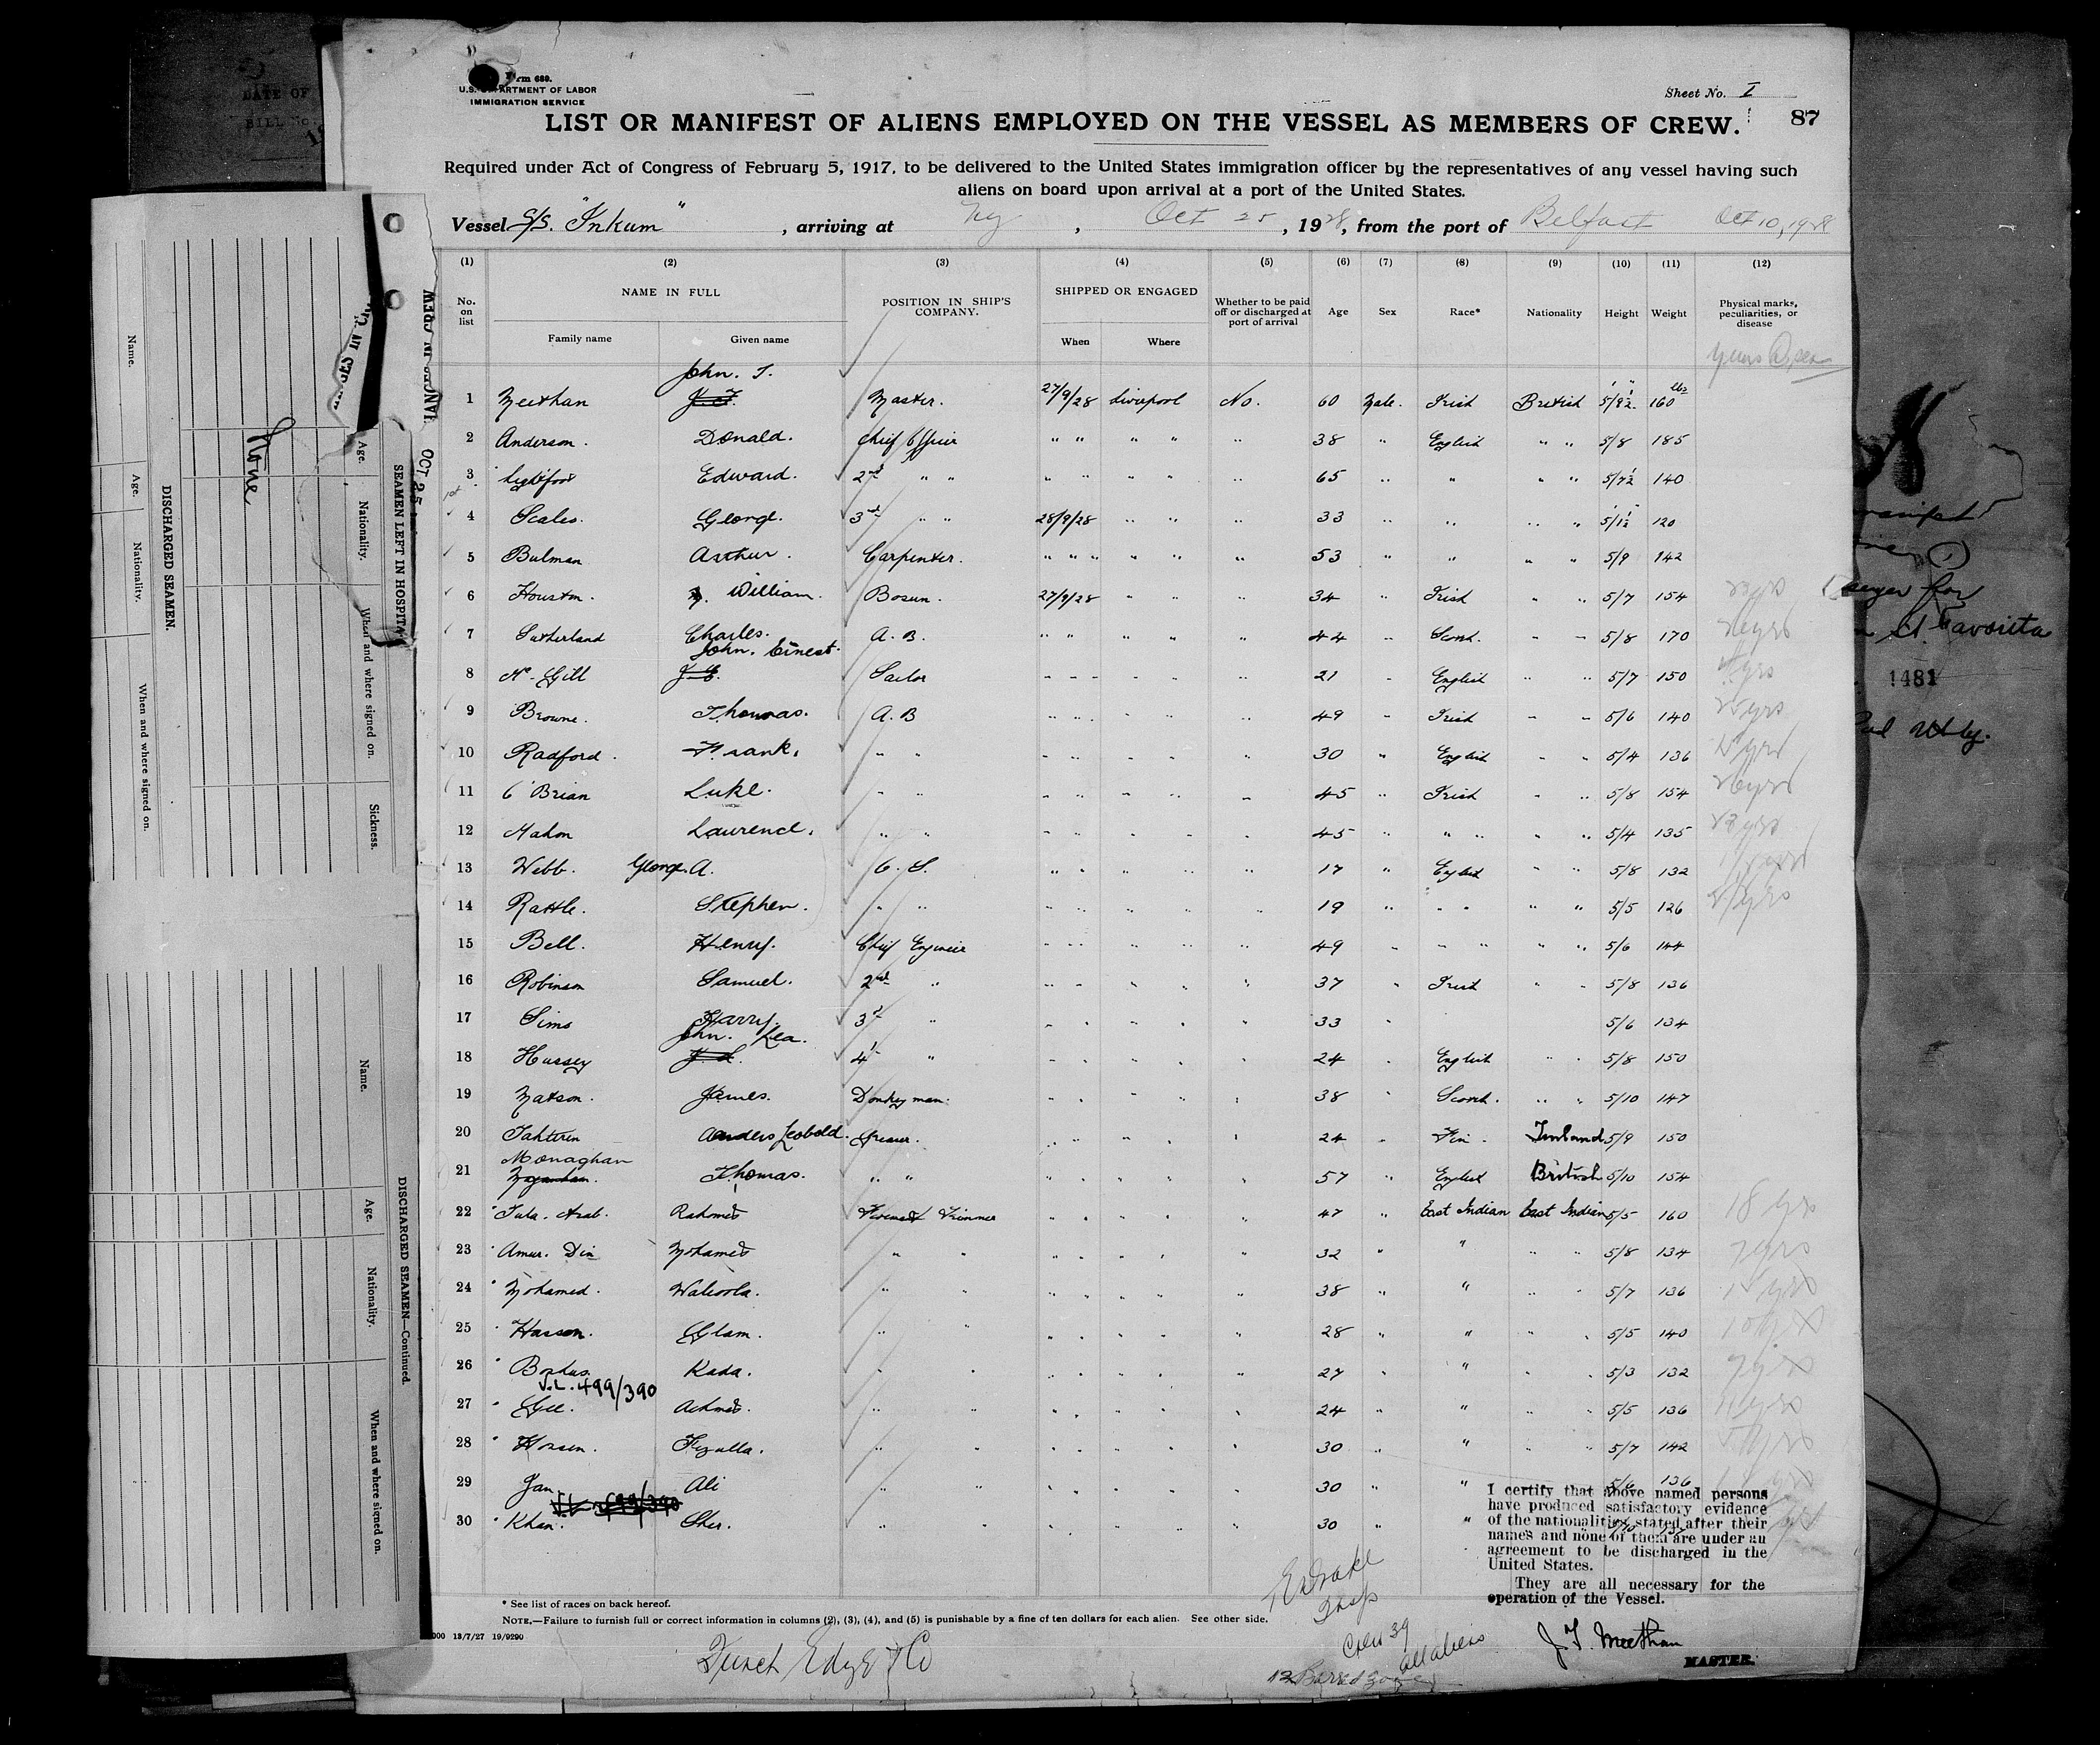 Form 680.
U.S. DEPARTMENT OF LABOR
IMMIGRATION SERVICE
Sheet No. I
LIST OR MANIFEST OF ALIENS EMPLOYED ON THE VESSEL AS MEMBERS OF CREW.
87
Required under Act of Congress of February 5, 1917, to be delivered to the United States immigration officer by the representatives of any vessel having such
aliens on board upon arrival at a port of the United States.
Vessel S/S. "Inkum", arriving at Ny, Oct 25, 1928, from the port of Belfast Oct 10, 1928
(1) (2) (3) (4) (5) (6) (7) (8) (9) (10) (11) (12)
No. on list NAME IN FULL POSITION IN SHIP'S COMPANY. SHIPPED OR ENGAGED Whether to be paid off or discharged at port of arrival Age Sex Race* Nationality Height Weight Physical marks, peculiarities, or disease
Family name Given name When Where
John. T.
1 Meethan J. T. Master. 27/9/28 Liverpool No. 60 Male. Irish British 5/8½ 160 lbs
2 Anderson. Donald. Chief Officer " " " " " 38 " English " " 5/8 185
3 Lightfoot Edward. 2nd " " " " " " " 65 " " " " 5/7½ 140
4 Scales. George. 3rd " " 28/9/28 " " " 33 " " " " 5/1½ 120
5 Bulman Arthur. Carpenter. " " " " " " 53 " " " " 5/9 142
6 Houston. William. Bosun. 27/9/28 " " " 34 " Irish " " 5/7 154
7 Sutherland Charles. A. B. " " " " " 44 " Scotch. " " 5/8 170
John. Ernest.
8 Mc Gill J. E. Sailor " " " " " " 21 " English " " 5/7 150
9 Browne. Thomas. A. B " " " " " 49 " Irish " " 5/6 140
10 Radford. Frank. " " " " " " " 30 " English " " 5/4 136
11 O'Brian Luke. " " " " " " " 45 " Irish " " 5/8 154
12 Mahon Laurence. " " " " " " " 45 " " " " " 5/4 135
13 Webb. George. A. O. S. " " " " " 17 " English " " 5/8 132
14 Rattle. Stephen. " " " " " " " 19 " " " " " 5/5 126
15 Bell. Henry. Chief Engineer " " " " " 49 " " " " " 5/6 144
16 Robinson Samuel. 2nd " " " " " " 37 " Irish " " 5/8 136
17 Sims Harry. 3rd " " " " " " 33 " 5/6 134
John. Lea.
18 Hussey J. L. 4th " " " " " " 24 " English " " 5/8 150
19 Matson. James. Donkeyman. " " " " " 38 " Scotch. " " 5/10 147
20 Tahteren Anders Leobold. Greaser. " " " " " 24 " Fin. Finland 5/9 150
Monaghan
21 Thomas. " " " " " " " 57 " English British 5/10 154
22 Arab. Rahomed Trimmer " " " " " 47 " East Indian East Indian 5/5 160 18 yrs
23 Amur. Din Mohamed " " " " " " " 32 " " " " 5/8 134 7 yrs
24 Mohamed. " " " " " " " 38 " " " " 5/7 136
25 Hassen. Glam. " " " " " " " 28 " " " " 5/5 140
26 Kada. " " " " " " " 27 " " " " 5/3 132
499/390
27 Gul. Achmed. " " " " " " " 24 " " " " 5/5 136
28 Hosen. Fezulla. " " " " " " " 30 " " " " 5/7 142
29 Jan Ali " " " " " " " 30 " " 5/6 136
499/390
30 Khan. Sher. " " " " " " " 30 " "
I certify that above named persons
have produced satisfactory evidence
of the nationalities stated after their
names and none of them are under an
agreement to be discharged in the
United States.
They are all necessary for the
operation of the Vessel.
J. T. Meethan
MASTER.
* See list of races on back hereof.
NOTE.—Failure to furnish full or correct information in columns (2), (3), (4), and (5) is punishable by a fine of ten dollars for each alien. See other side.
000 13/7/27 19/9290
Funch Edye & Co
Crew 39
all aliens
12 Barred zone
SEAMEN LEFT IN HOSPITAL
Age. Nationality. When and where signed on. Sickness.
OCT 25
DISCHARGED SEAMEN.
Name. Age. Nationality. When and where signed on.
None
DISCHARGED SEAMEN—Continued.
Name. Age. Nationality. When and where signed on.
DATE OF
BILL No.
manifest
1481